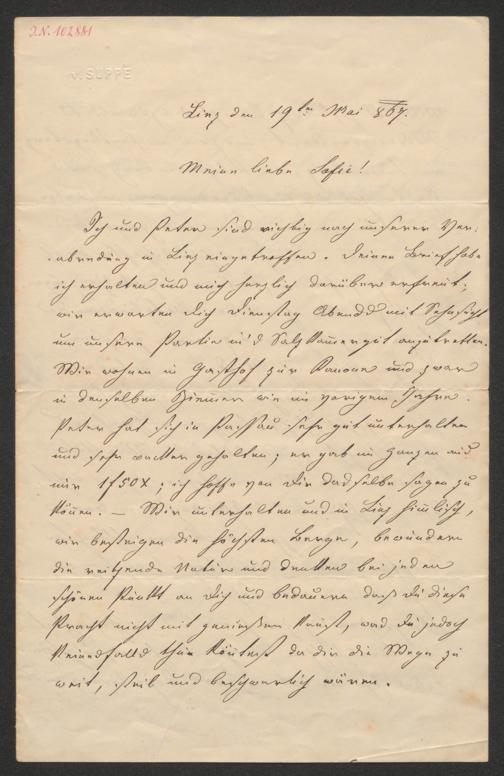 J.N. 102881
v. SUPPÉ
Linz den 19ten Mai 867.
Meine liebe Sofie!
Ich und Peter sind richtig nach unserer Ver=
abredung in Linz eingetroffen. Deinen Brief habe
ich erhalten und mich herzlich darüber erfreut;
wir erwarten Dich Dienstag Abends mit Sehnsucht
um unsere Partie in's Salzkammergut anzutretten.
Wir wohnen im Gasthof zur Kanone und zwar
in denselben Zimmer wie im vorigem Jahre.
Peter hat sich in Passau sehr gut unterhalten
und sehr wacker gehalten; er gab im Ganzen aus
nur 1f50X; ich hoffe von Dir dasselbe sagen zu
können. – Wir unterhalten uns in Linz himmlisch,
wir besteigen die höchsten Berge, bewundern
die reitzende Natur und denken bei jedem
schönen Punkt an Dich und bedauern daß Du diese
Pracht nicht mit genießen kannst, was Du jedoch
keinesfalls thun könntest da dir die Wege zu
weit, steil und beschwerlich wären.